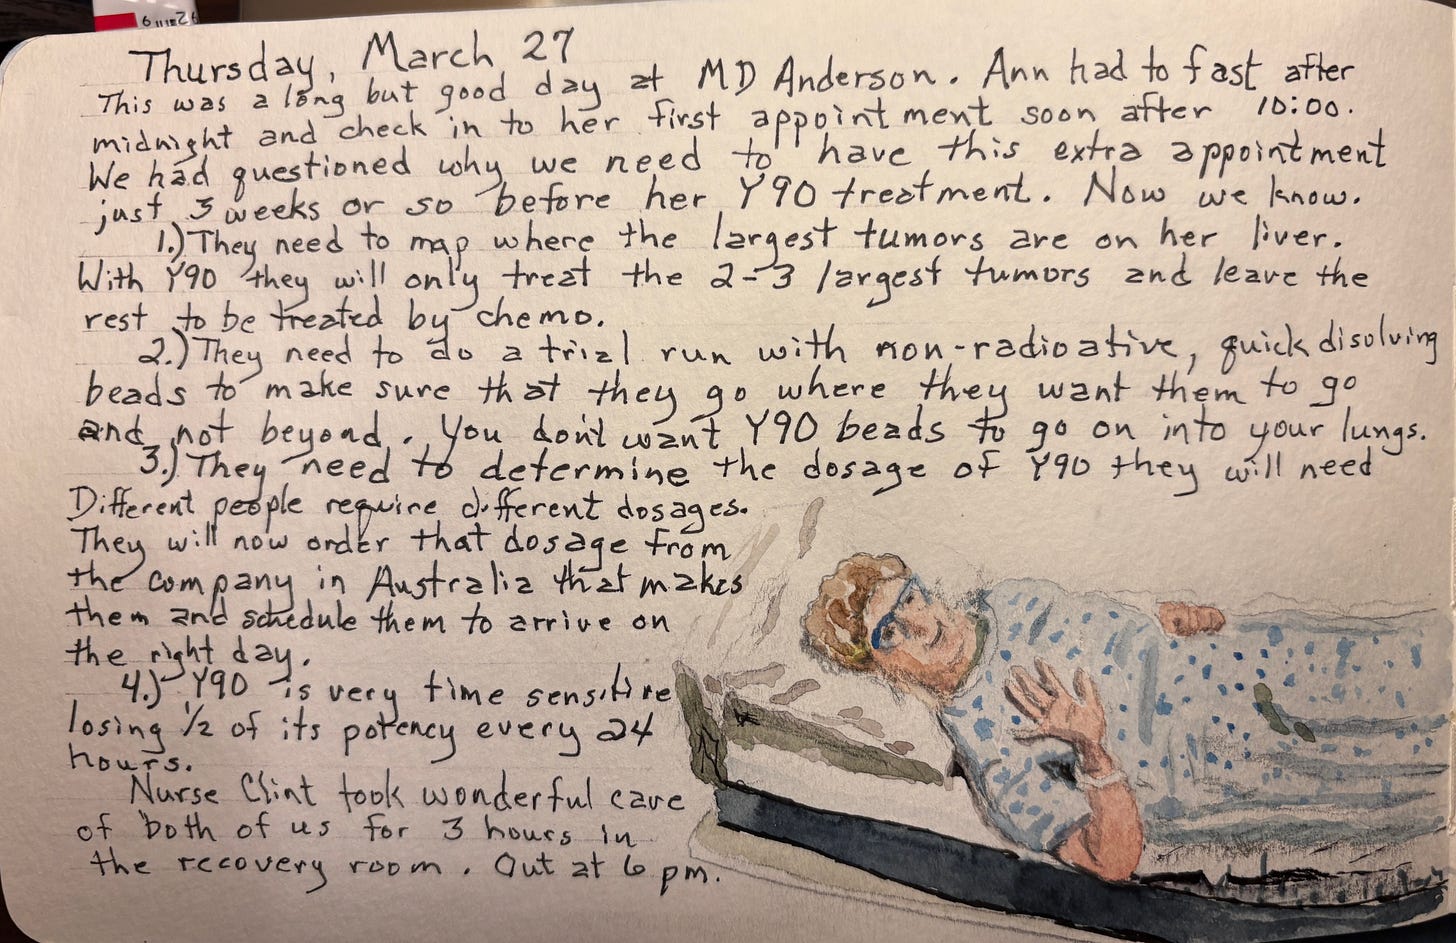 Thursday, March 27
This was a long but good day at MD Anderson. Ann had to fast after
midnight and check in to her first appointment soon after 10:00.
We had questioned why we need to have this extra appointment
just 3 weeks or so before her Y90 treatment. Now we know.
1.) They need to map where the largest tumors are on her liver.
With Y90 they will only treat the 2-3 largest tumors and leave the
rest to be treated by chemo.
2.) They need to do a trial run with non-radioative, quick disolving
beads to make sure that they go where they want them to go
and not beyond. You don't want Y90 beads to go on into your lungs.
3.) They need to determine the dosage of Y90 they will need
Different people require different dosages.
They will now order that dosage from
the company in Australia that makes
them and schedule them to arrive on
the right day.
4.) Y90 is very time sensitive
losing 1/2 of its potency every 24
hours.
Nurse Clint took wonderful care
of both of us for 3 hours in
the recovery room. Out at 6 pm.